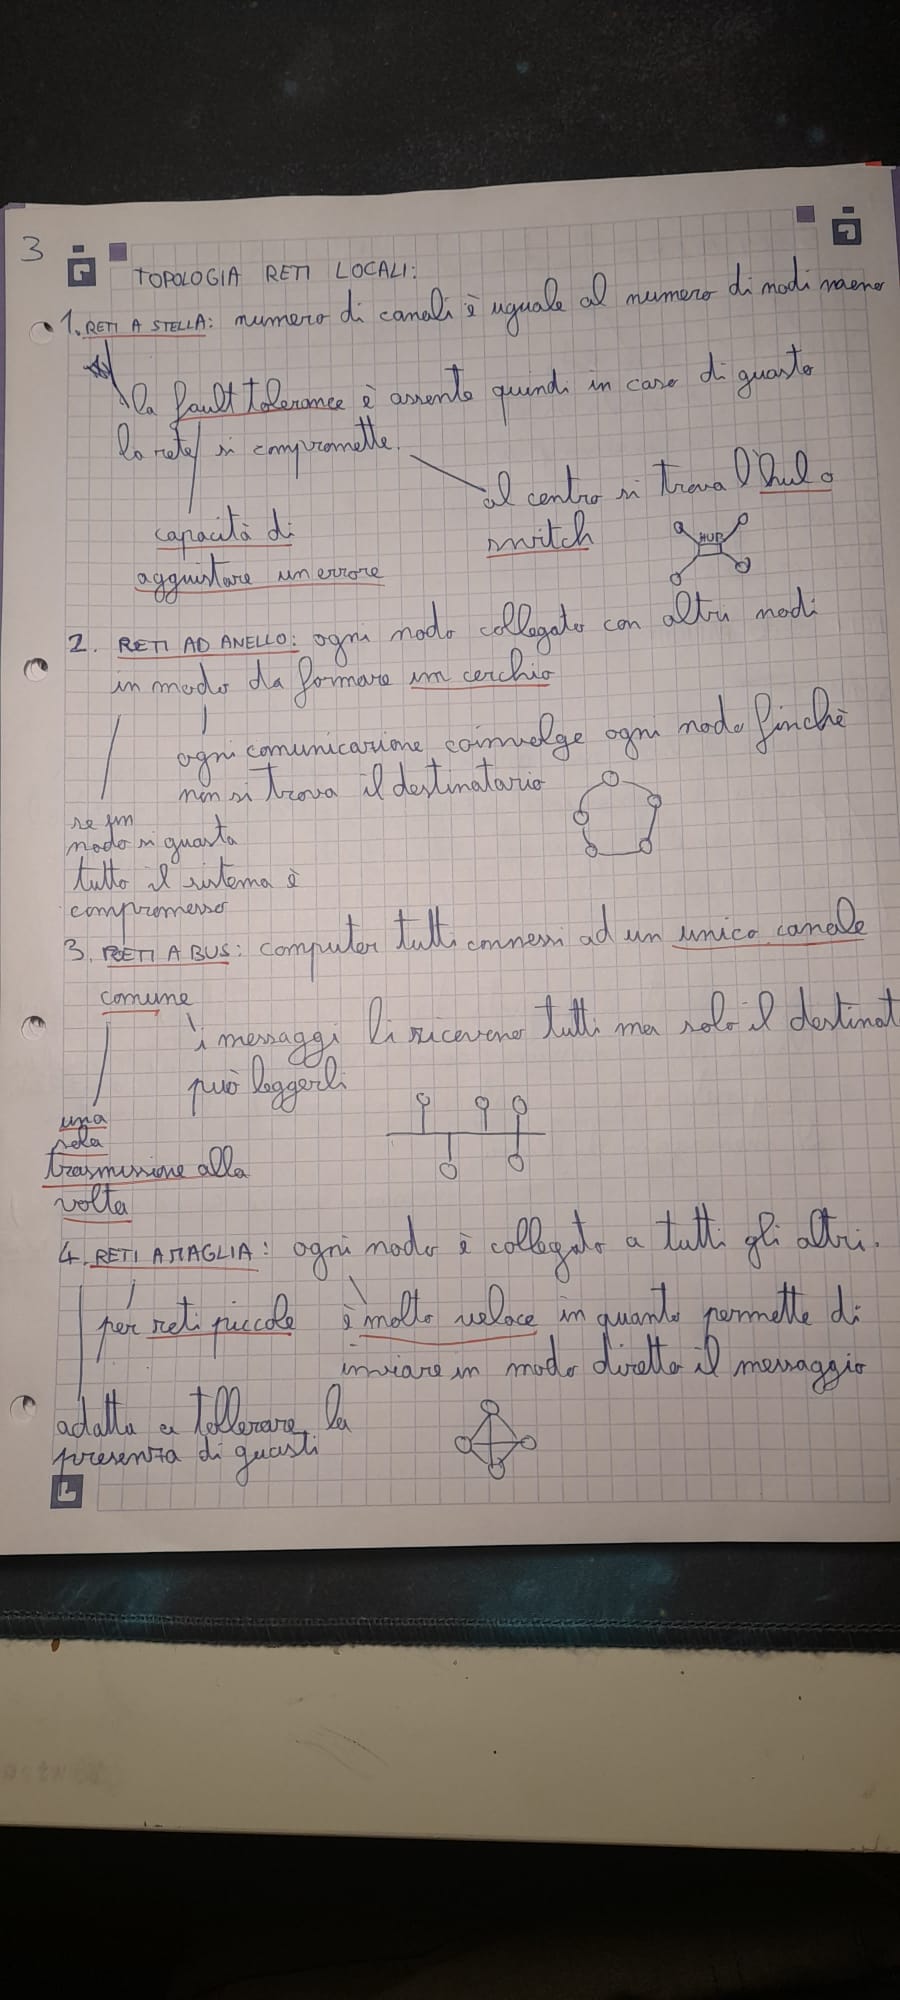 3
TOPOLOGIA RETI LOCALI:
1. RETI A STELLA: numero di canali è uguale al numero di nodi meno
la fault tolerance è assente quindi in caso di guasto
la rete si compromette.
al centro si trova l'hub o
switch
HUB
capacità di
aggiustare un errore
2. RETI AD ANELLO: ogni nodo collegato con altri nodi
in modo da formare un cerchio
ogni comunicazione coinvolge ogni nodo finchè
non si trova il destinatario
se un
nodo si guasta
tutto il sistema è
compromesso
3. RETI A BUS: computer tutti connessi ad un unico canale
comune
i messaggi li ricevono tutti ma solo il destinat
può leggerli
una
sola
trasmissione alla
volta
4. RETI A MAGLIA: ogni nodo è collegato a tutti gli altri.
per reti piccole
è molto veloce in quanto permette di
inviare in modo diretto il messaggio
adatta a tollerare la
presenza di guasti